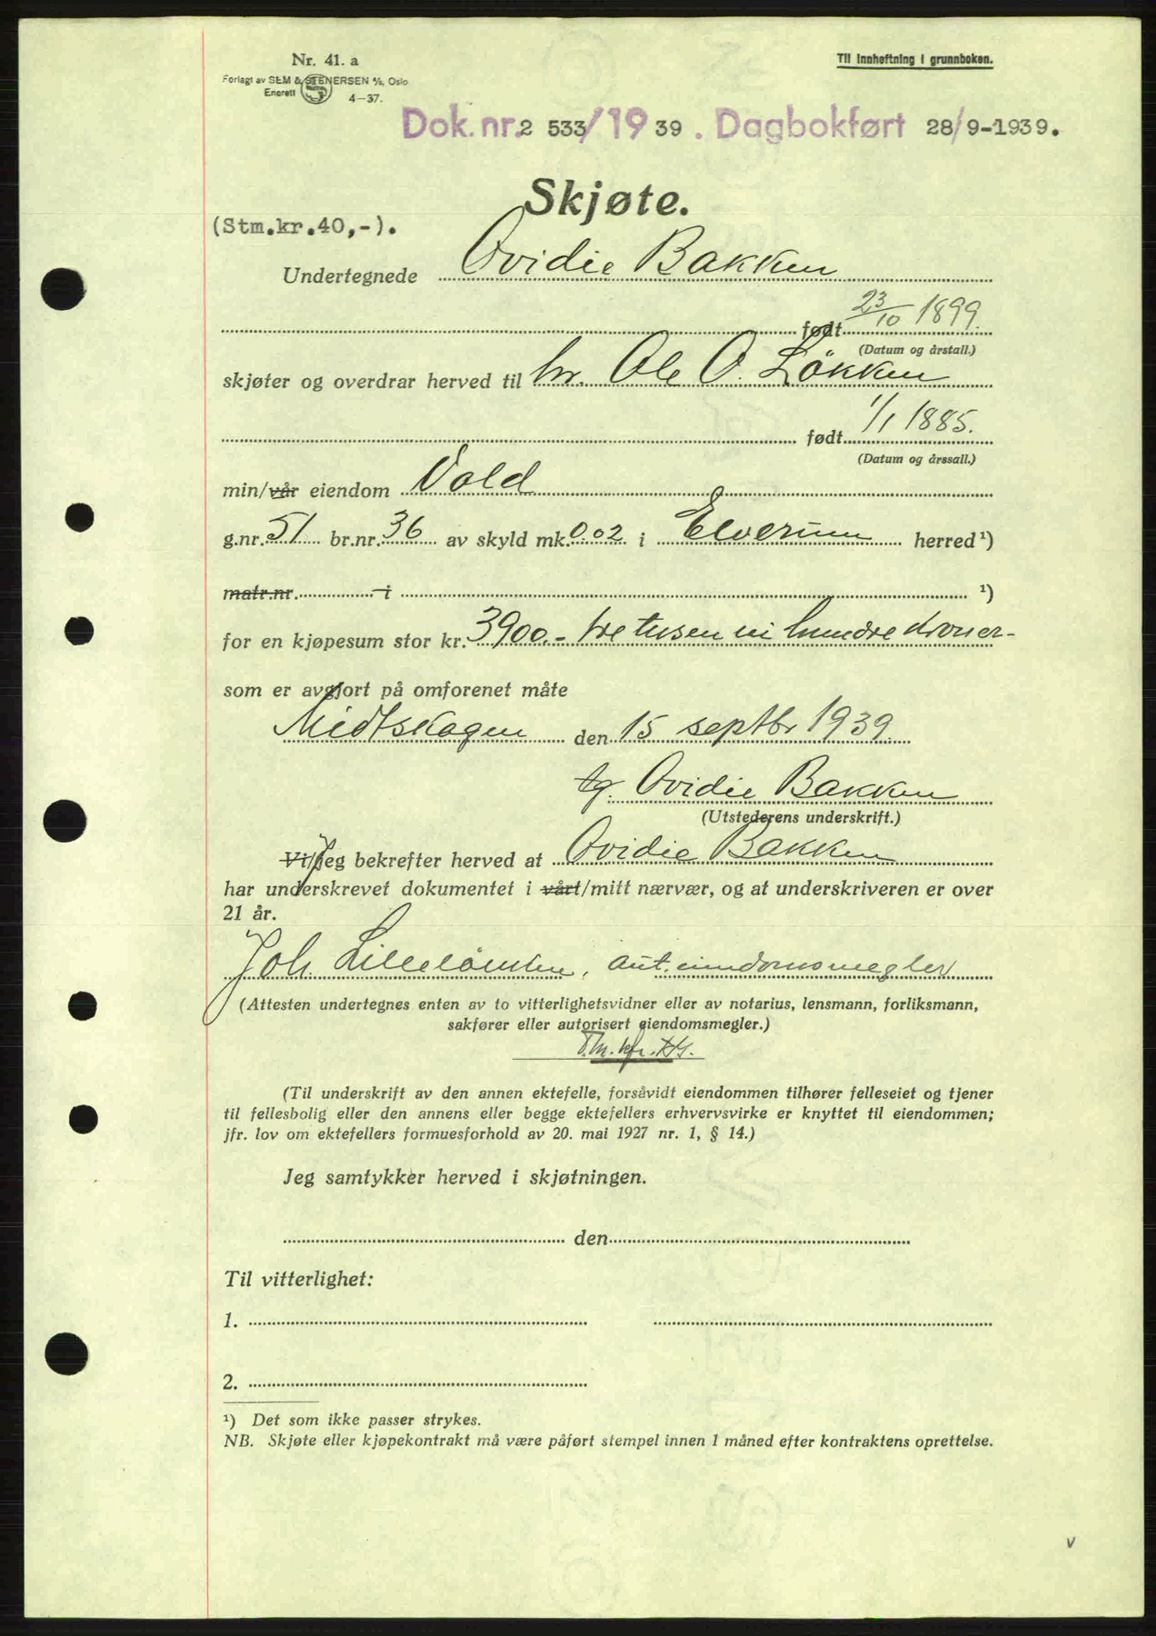 Nr. 41. a
Til innheftning i grunnboken.
Forlagt av SEM & STENERSEN A/S, Oslo
Enerett 4-37.
Dok. nr. 2 533/1939. Dagbokført 28/9-1939.
Skjøte.
(Stm.kr.40,-).
Undertegnede Ovidie Bakken
født 23/10 1899.
(Datum og årstall.)
skjøter og overdrar herved til hr. Ole O. Løkken
født 1/1 1885.
(Datum og årssall.)
min/vår eiendom Vold
g.nr. 51 br.nr. 36 av skyld mk. 0.02 i Elverum herred ¹)
matr.nr. i ¹)
for en kjøpesum stor kr. 3900.- tre tusen ni hundre kroner-
som er avgjort på omforenet måte
Midtskogen den 15 septbr 1939
Ovidie Bakken
(Utstederens underskrift.)
Vi/Jeg bekrefter herved at Ovidie Bakken
har underskrevet dokumentet i vårt/mitt nærvær, og at underskriveren er over
21 år.
Joh. aut. eiendomsmegler
(Attesten undertegnes enten av to vitterlighetsvidner eller av notarius, lensmann, forliksmann,
sakfører eller autorisert eiendomsmegler.)
(Til underskrift av den annen ektefelle, forsåvidt eiendommen tilhører felleseiet og tjener
til fellesbolig eller den annens eller begge ektefellers erhvervsvirke er knyttet til eiendommen;
jfr. lov om ektefellers formuesforhold av 20. mai 1927 nr. 1, § 14.)
Jeg samtykker herved i skjøtningen.
den
Til vitterlighet:
1.
2.
¹) Det som ikke passer strykes.
NB. Skjøte eller kjøpekontrakt må være påført stempel innen 1 måned efter kontraktens oprettelse.
v